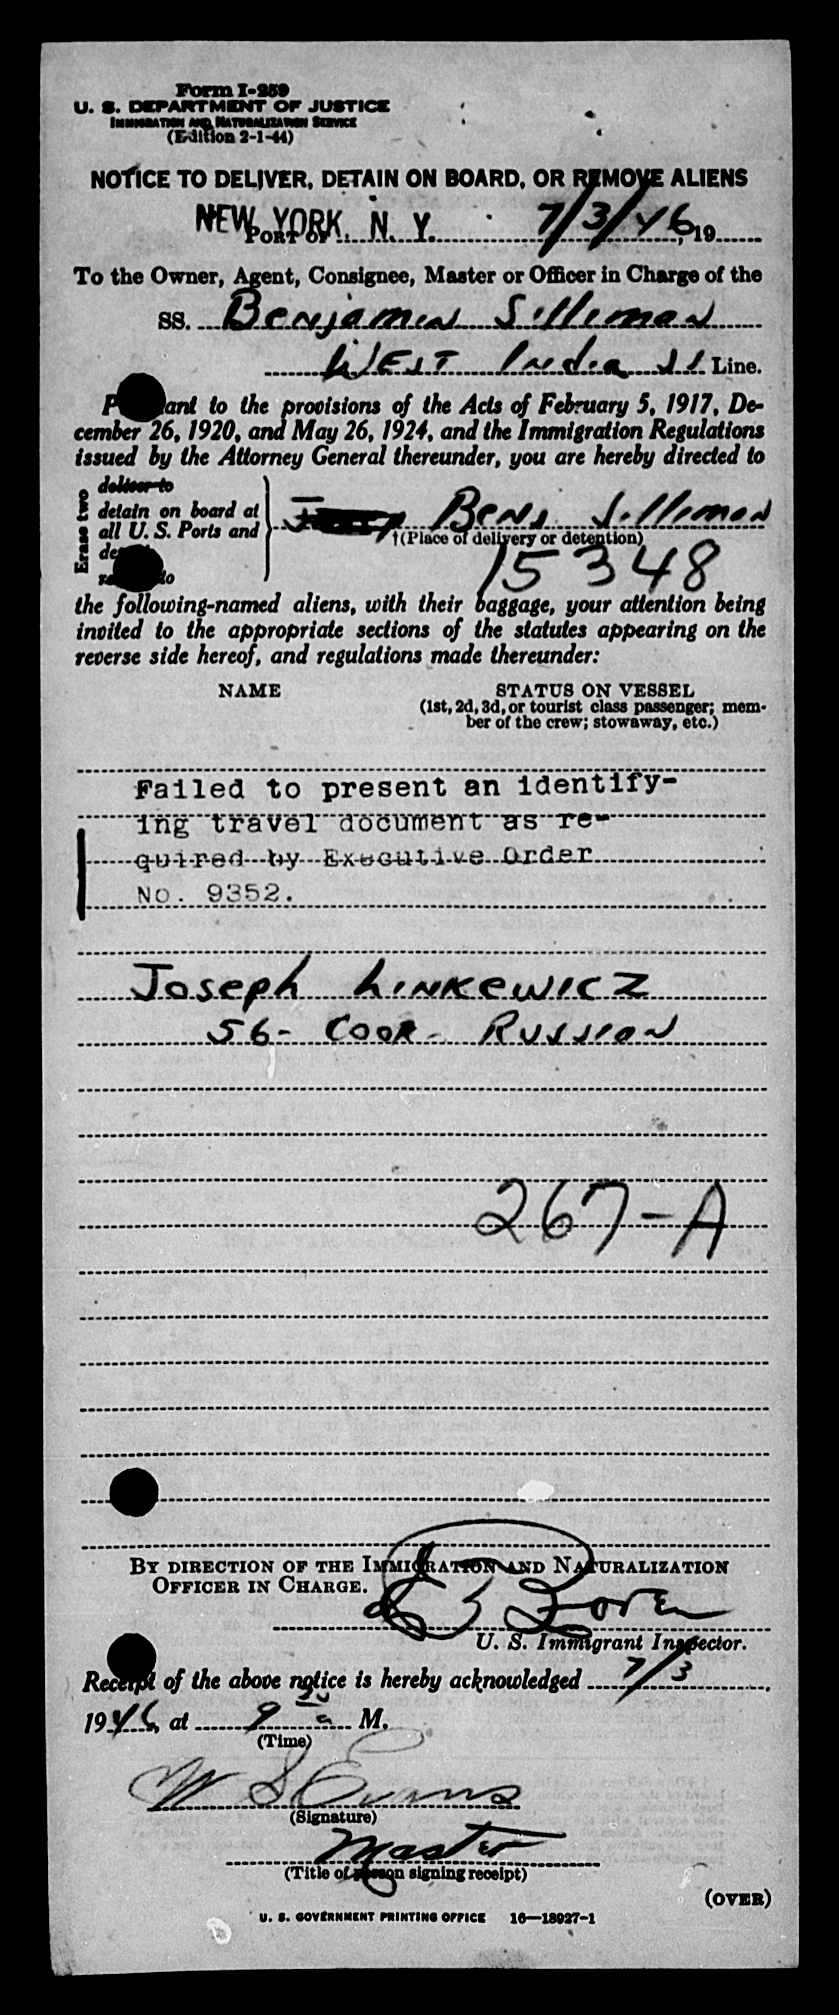 Form I-259
U. S. DEPARTMENT OF JUSTICE
IMMIGRATION AND NATURALIZATION SERVICE
(Edition 2-1-44)
NOTICE TO DELIVER, DETAIN ON BOARD, OR REMOVE ALIENS
NEW YORK, N. Y. 7/3/46
PORT OF , 19
To the Owner, Agent, Consignee, Master or Officer in Charge of the
SS. Benjamin Silliman
West India SS Line.
Pursuant to the provisions of the Acts of February 5, 1917, De-
cember 26, 1920, and May 26, 1924, and the Immigration Regulations
issued by the Attorney General thereunder, you are hereby directed to
Erase two
deliver to
detain on board at
all U. S. Ports and
Benj Silliman
†(Place of delivery or detention)
15348
the following-named aliens, with their baggage, your attention being
invited to the appropriate sections of the statutes appearing on the
reverse side hereof, and regulations made thereunder:
NAME STATUS ON VESSEL
(1st, 2d, 3d, or tourist class passenger; mem-
ber of the crew; stowaway, etc.)
Failed to present an identify-
ing travel document as re-
quired by Executive Order
No. 9352.
Joseph Linkewicz
56- Cook- Russian
267-A
BY DIRECTION OF THE IMMIGRATION AND NATURALIZATION
OFFICER IN CHARGE.
U. S. Immigrant Inspector.
Receipt of the above notice is hereby acknowledged 7/3
1946, at 9 a M.
(Time)
W S Evans
(Signature)
Master
(Title of person signing receipt)
(OVER)
U. S. GOVERNMENT PRINTING OFFICE 16—18927-1